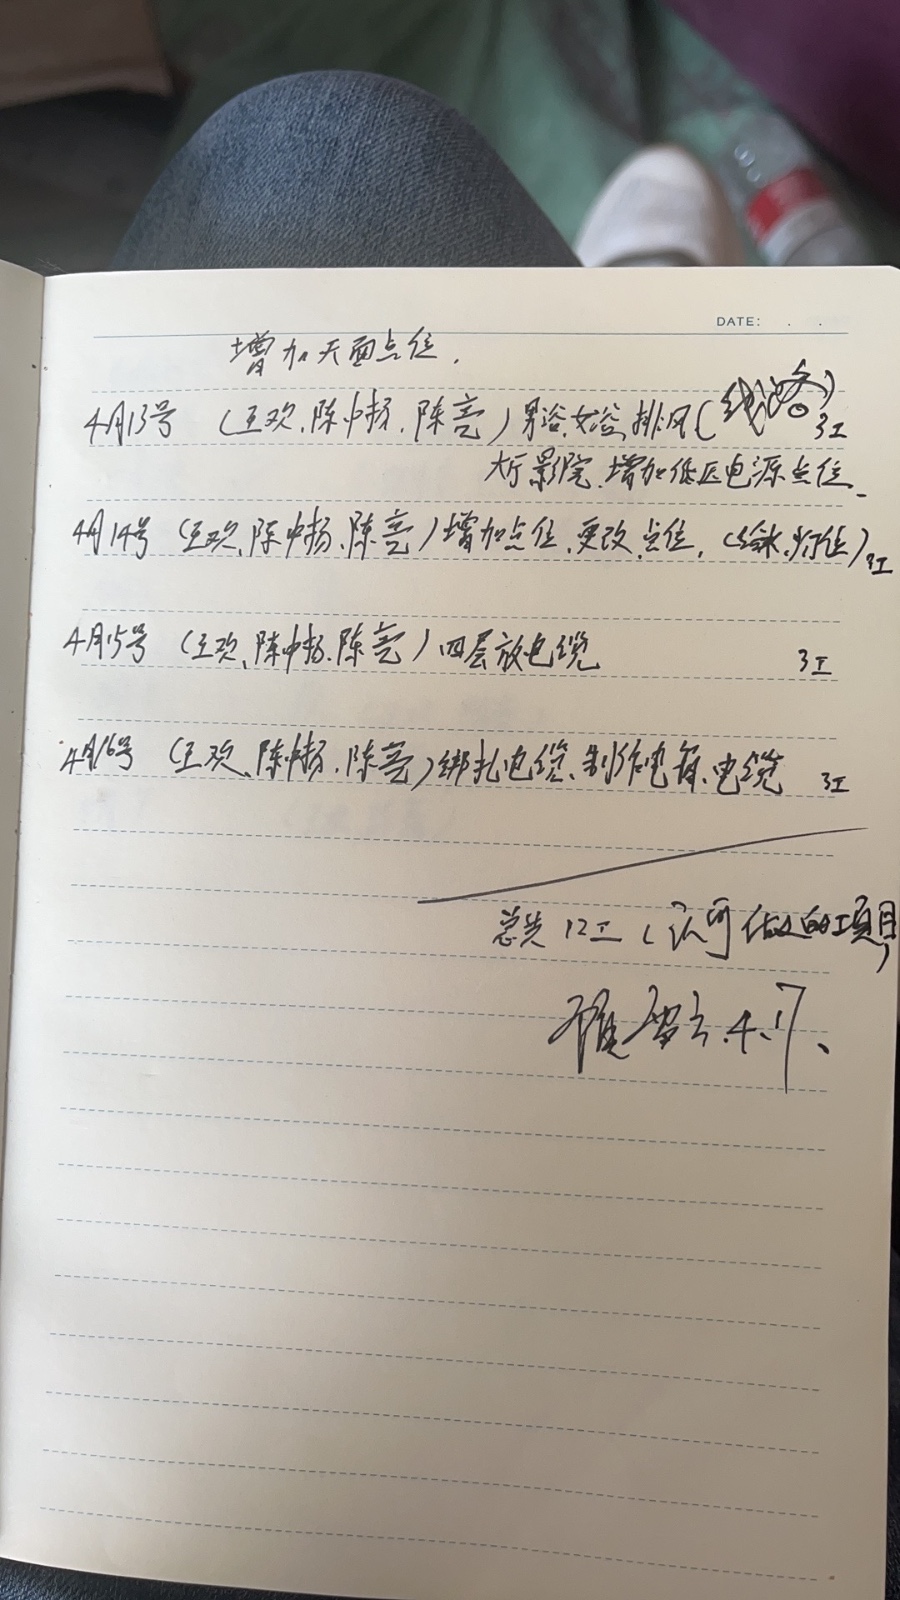 DATE: . .
增加天面点位.
4月13号 (王欢、陈中扬、陈亮)男浴、女浴、排风(线路) 3工
大厅影院、增加低区电源点位
4月14号 (王欢、陈中扬、陈亮)增加点位、更改点位, (给水、灯位) 3工
4月15号 (王欢、陈中扬、陈亮)四层放电缆 3工
4月16号 (王欢、陈中扬、陈亮)绑扎电缆、制作电箱、电缆 3工
总共12工 (认可做的项目)
4.17